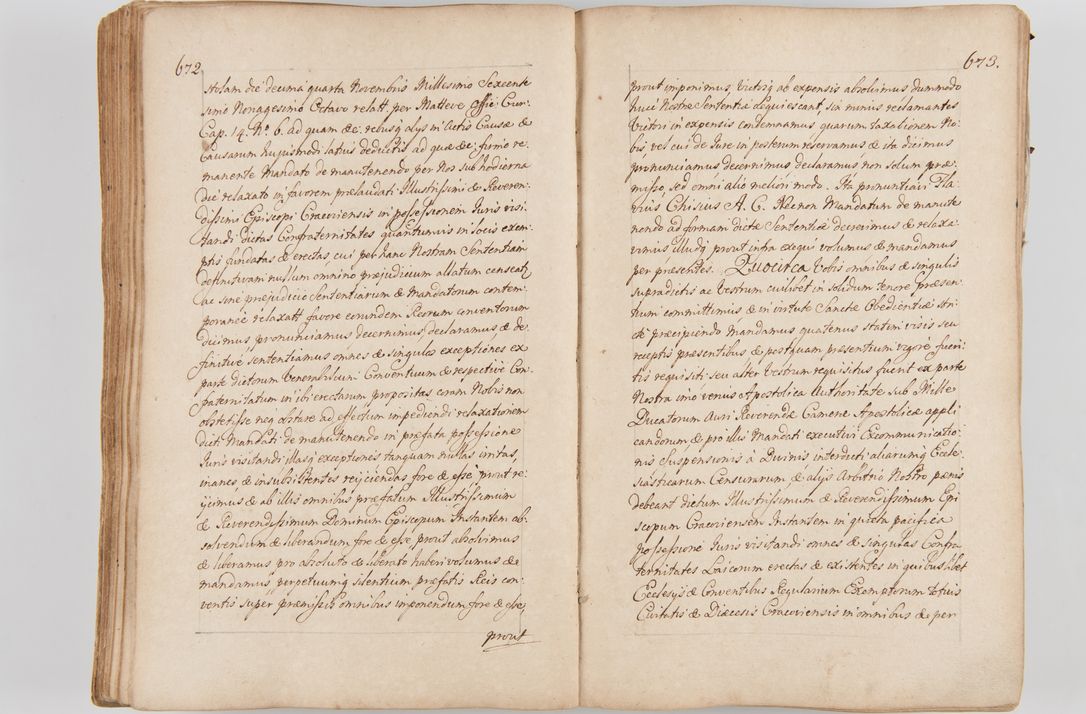 672
stolam die decima quarta Novembris Millesimo Sexcente
simo Nonagesimo Octavo relatt. per Matteve Offic: Cron:
Cap. 14. No. 6. ad quam &c: rebusq alys in Actis Causæ &
Causarum hujusmodi latius deductis ad quæ &c: firmo re,
manente Mandato de manutenendo per Nos sub hodierna
die relaxato in favorem prælaudati Illustrissimi & Reveren
dissimi Episcopi Cracoviensis in possessionem Juris visi
tandi dictas Confraternitates quantumvis in locis exem
ptis fundatas & erectas, cui per hanc Nostram Sententiam
deffinitivam nullum omnino præjudicium allatum censeatr
ac sine prejudicio Sententiarum & Mandatorum contem,
poranee relaxatt favore eorundem Reorum conventorum
dicimus pronunciamus decernimus, declaramus & de,
finitive sententiamus omnes & singulas exceptiones ex
parte dictorum Venerabilium Conventuum & respective Con,
fraternitatum in ibi erectarum propositas coram Nobis non
obstitisse neq obstare ad effectum impediendi relaxationem
dicti Mandati de manutenendo in præfata possessione
Juris visitandi illasq exceptiones tanquam nullas irritas,
inanes & insubsistentes rejiciendas fore & esse prout re,
ijcimus & ab illis omnibus præfatum Illustrissimum
& Reverendissimum Dominum Episcopum Instantem ab,
solvendum & liberandum fore & esse, prout absolvimus
& liberamus pro absoluto & liberato haberi volumus &
mandamus perpetuumq silentium præfatis Reis con,
ventis super præmissis omnibus imponendum fore & esse,
prout
673.
prout imponimus, victosq ab expensis absolvimus dummodo
huic Nostræ Sententiæ acquiescant, sin minus reclamantes
Victori in expensis condemnamus quarum taxationem No,
bis vel cui de Jure in posterum reservamus & ita dicimus
pronunciamus decernimus declaramus non solum præ,
misso, sed omni alio meliori modo. Ita pronuntiavi Fla
vius Chisius A. C. Necnon Mandatum de manute
nendo ad formam dictæ Sententiæ decrevimus & relaxa
vimus illudq prout infra exequi volumus & mandamus
per præsentes. Quocirca Vobis omnibus & singulis
supradictis ac Vestrum cuilibet in solidum tenore præsen,
tium committimus & in virtute Sanctæ Obedientiæ stri
cte præcipiendo mandamus quatenus statim visis seu
receptis præsentibus & postquam præsentium vigore fueri,
tis requisiti seu alter Vestrum requisitus fuerit ex parte
Nostra imo verius Apostolica Authoritate sub Mille
Ducatorum Auri Reverendæ Cameræ Apostolicæ appli
candorum & pro illis Mandati executivi Excommunicatio,
nis Suspensionis à Divinis interdicti aliarumq Eccle,
siasticarum Censurarum & alijs Arbitrio Nostro pænis
debeant dictum Illustrissimum & Reverendissimum Epi
scopum Cracoviensem Instantem in quieta pacifica
possessione Juris visitandi omnes & singulas Confra
ternitates Laicorum erectas & existentes in quibuslibet
Ecclesys & Conventibus Regularium Exemptorum totius
Civitatis & Diæcesis Cracoviensis in omnibus & per